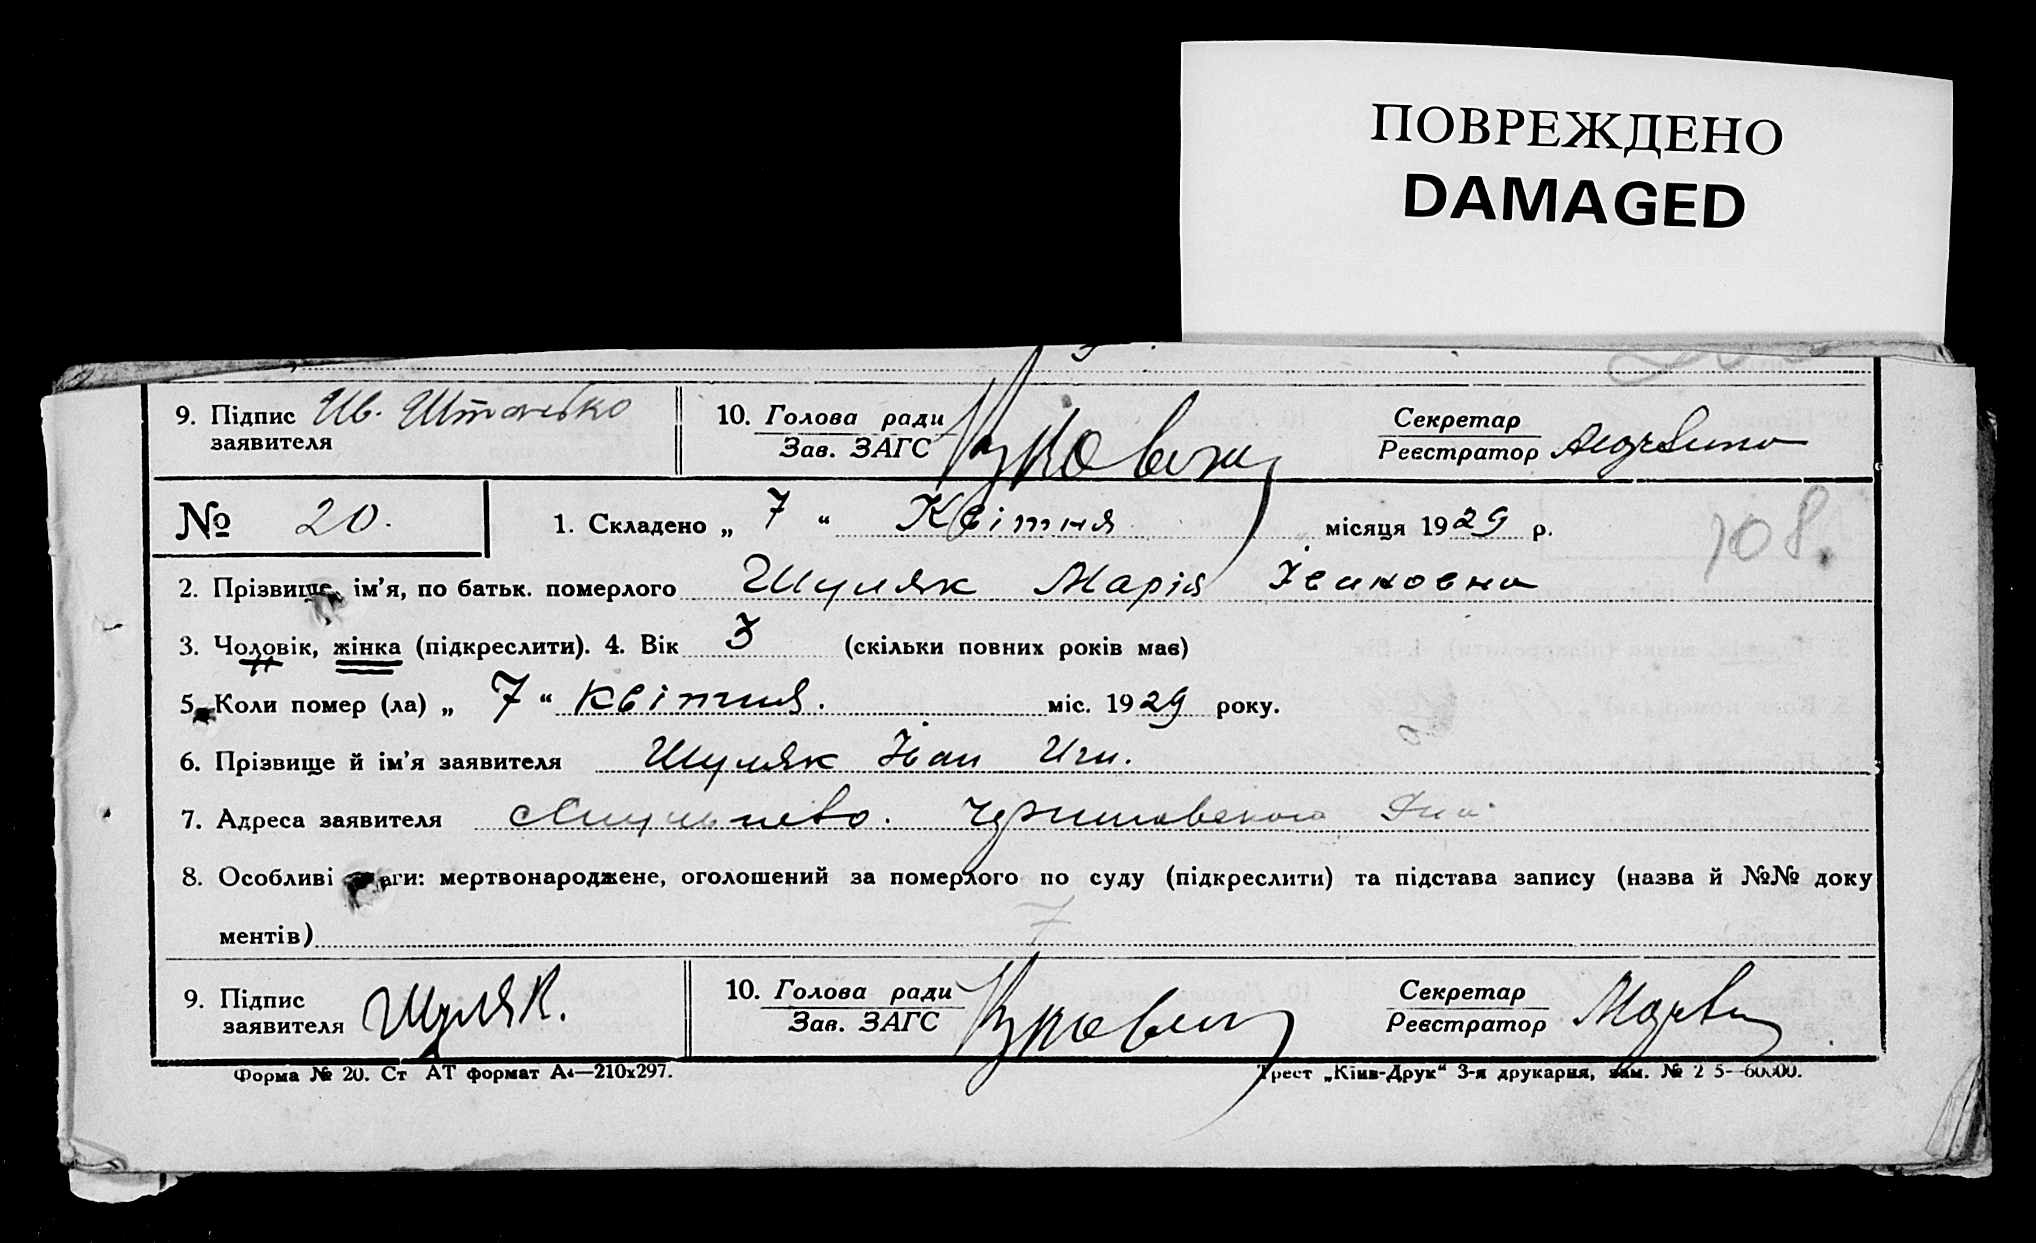 ПОВРЕЖДЕНО
DAMAGED
9. Підпис заявителя Ив. 10. Голова ради Зав. ЗАГС Секретар Реєстратор
№ 20. 1. Складено „ 7 “ Квітня місяця 1929 р. 108.
2. Прізвище, ім’я, по батьк. померлого Шуляк Марія Івановна
3. Чоловік, жінка (підкреслити). 4. Вік 3 (скільки повних років мав)
5. Коли помер (ла) „ 7 “ квітня. міс. 1929 року.
6. Прізвище й ім’я заявителя Шуляк Іван Игн.
7. Адреса заявителя
8. Особливі ваги: мертвонароджене, оголошений за померлого по суду (підкреслити) та підстава запису (назва й №№ доку
ментів) 7
9. Підпис заявителя Шуляк. 10. Голова ради Зав. ЗАГС Секретар Реєстратор
Форма № 20. Ст АТ формат А4—210х297. Трест „Київ-Друк“ 3-я друкарня, зам. № 2 5—60000.